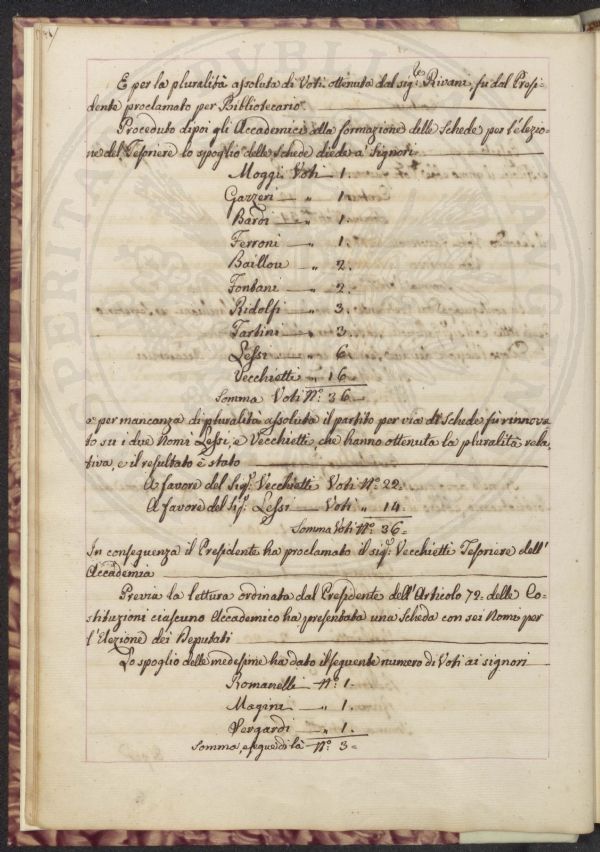 E per la pluralità assoluta di Voti ottenuta dal sig.e Rivani, fu dal Presi=
dente proclamato per Bibliotecario.
Proceduto dipoi gli Accademici alla formazione delle Schede per l'elezio=
ne del Tesoriere lo spoglio delle schede diede a Signori
Moggi Voti 1.
Gazzeri — „ 1.
Bardi — „ 1.
Ferroni — „ 1.
Baillou — „ 2.
Fontani — „ 2.
Ridolfi — „ 3.
Tartini — „ 3.
Lessi — „ 6.
Vecchietti „ 16
Somma Voti N.o 36
e per mancanza di pluralità assoluta il partito per via di Schede fù rinnova=
to su i due Nomi Lessi, e Vecchietti, che hanno ottenuta la pluralità rela=
tiva, e il resultato è stato
A favore del Sig.r Vecchietti Voti N.o 22.
A favore del Sig.r Lessi — Voti „ 14.
Somma Voti N.o 36=
In conseguenza il Presidente ha proclamato il sig.r Vecchietti Tesoriere dell'
Accademia
Previa la lettura ordinata dal Presidente dell'Articolo 72. delle Co=
stituzioni ciascuno Accademico ha presentata una Scheda con sei Nomi per
l'Elezione dei Deputati
Lo spoglio delle medesime ha dato il seguente numero di Voti ai signori
Romanelli — N.o 1.
Magini — „ 1.
Vergardi — „ 1.
Somma, e segue di là N.o 3=